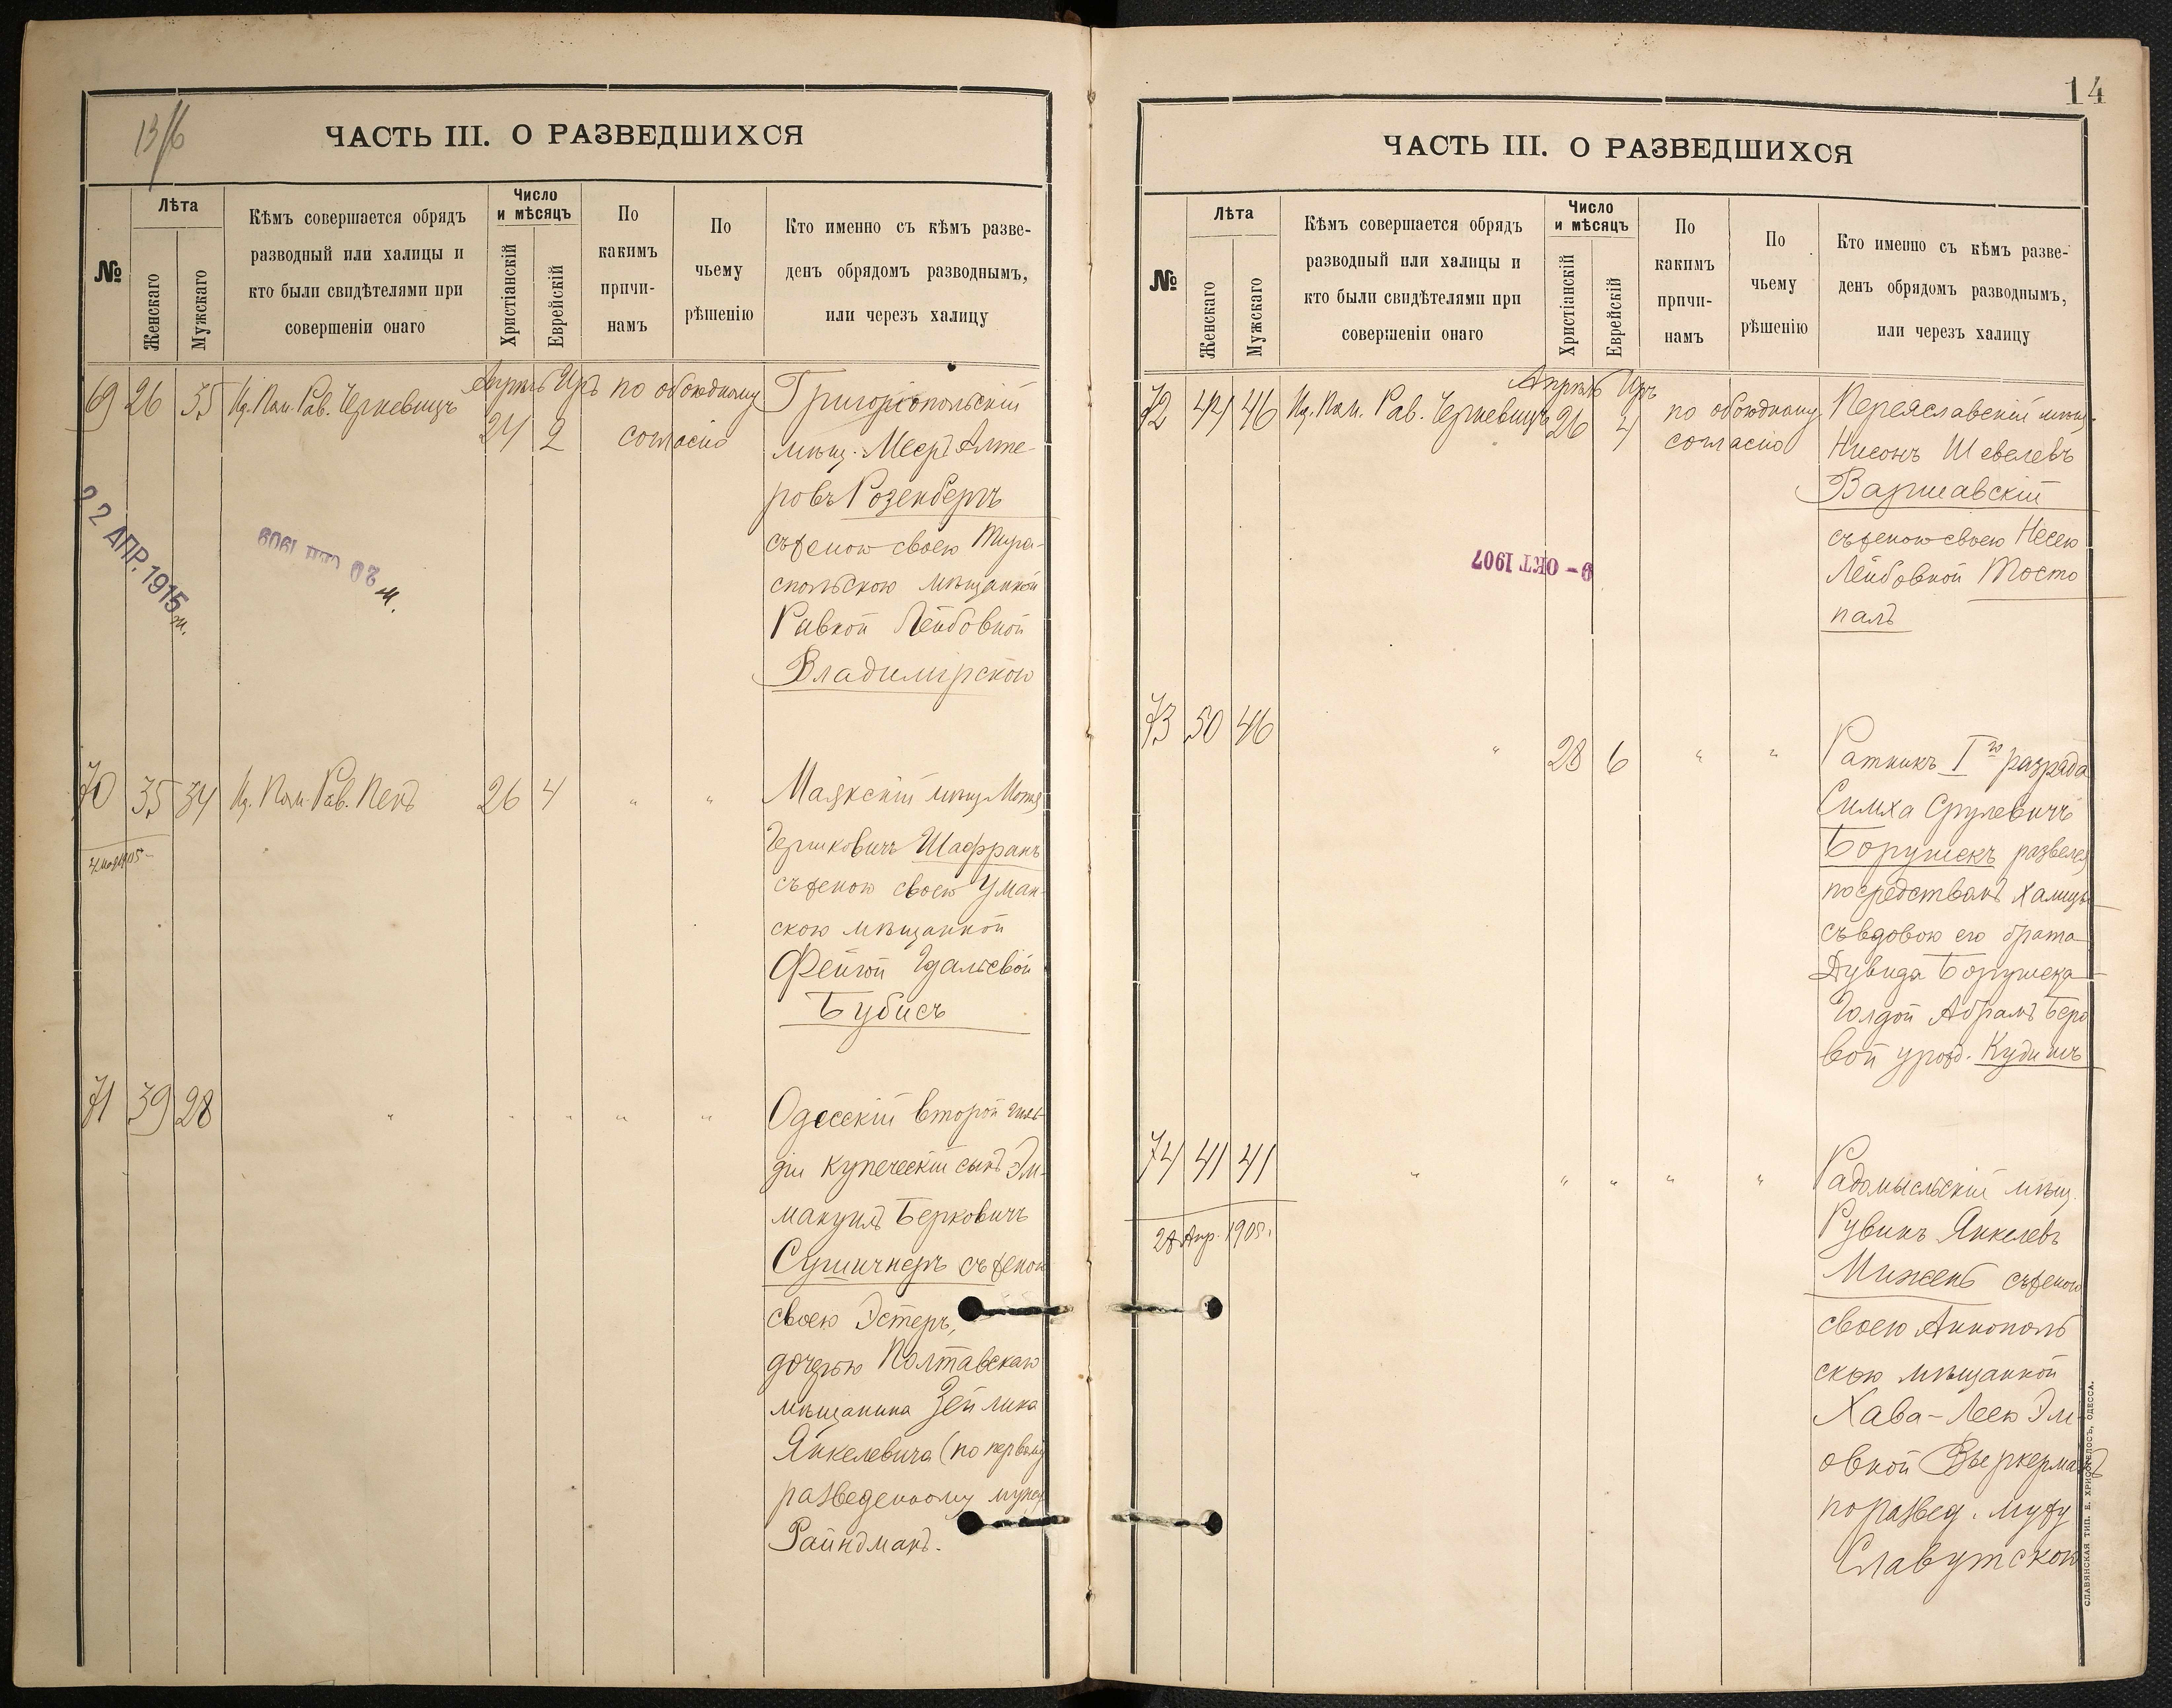 13/16
ЧАСТЬ III. О РАЗВЕДШИХСЯ
№
Лѣта
Женскаго
Мужскаго
Кѣмъ совершается обрядъ
разводный или халицы и
кто были свидѣтелями при
совершеніи онаго
Число
и мѣсяцъ
Христіанскій
Еврейскій
По
какимъ
причи-
намъ
По
чьему
рѣшенію
Кто именно съ кѣмъ разве-
денъ обрядомъ разводнымъ,
или черезъ халицу
69 26 35 Пом. Рав. Черкевицъ
Апрѣль Иръ
24 2
по обоюдному
согласію
Григоріопольскій
мѣщ. Мееръ Алте-
ровъ Розенбергъ
съ женою своею Тира-
спольскою мѣщанкой
Ривкой Лейбовной
Владимірскою
22 АПР. 1915
20 СЕН 1909
70 35 34 Пом. Рав. Пенъ
26 4 " "
Маякскій мѣщ. Мотя
Гершковичъ Шафранъ
съ женою своею Уман-
скою мѣщанкой
Фейгой Гдальевой
Бубисъ
71 39 28 " " " " "
Одесскій второй гиль-
діи купеческій сынъ Эм-
мануилъ Берковичъ
Сушичнеръ съ женою
своею Эстеръ,
дочерью Полтавскаго
мѣщанина Зейлика
Янкелевича (по первому
разведенному мужу
Райндманъ.
14
ЧАСТЬ III. О РАЗВЕДШИХСЯ
№
Лѣта
Женскаго
Мужскаго
Кѣмъ совершается обрядъ
разводный или халицы и
кто были свидѣтелями при
совершеніи онаго
Число
и мѣсяцъ
Христіанскій
Еврейскій
По
какимъ
причи-
намъ
По
чьему
рѣшенію
Кто именно съ кѣмъ разве-
денъ обрядомъ разводнымъ,
или черезъ халицу
72 44 46 Пом. Рав. Черкевицъ
Апрѣль Иръ
26 4
по обоюдному
согласію
Переяславскій мѣщ.
Нисонъ Шевелевъ
Варшавскій
съ женою своею Несею
Лейбовной Тосто
палъ
9 - ОКТ 1907
73 50 46 " 28 6 " "
Ратникъ I го разряда
Симха Срулевичъ
Борушекъ развелся
посредствомъ халицы
съ вдовою его брата
Дувида Борушека
Голдой Абрамъ Беро
вой урожд. Кудишъ
74 41 41 " " " " "
28 Апр. 1905.
Радомысльскій мѣщ.
Рувинъ Янкелевъ
Миженъ съ женою
своею Аннополь
скою мѣщанкой
Хава-Леею Эл
овной
по развед. мужу
Славутскою
СЛАВЯНСКАЯ ТИП. Е. ХРИСОГЕЛОСЪ, ОДЕССА.